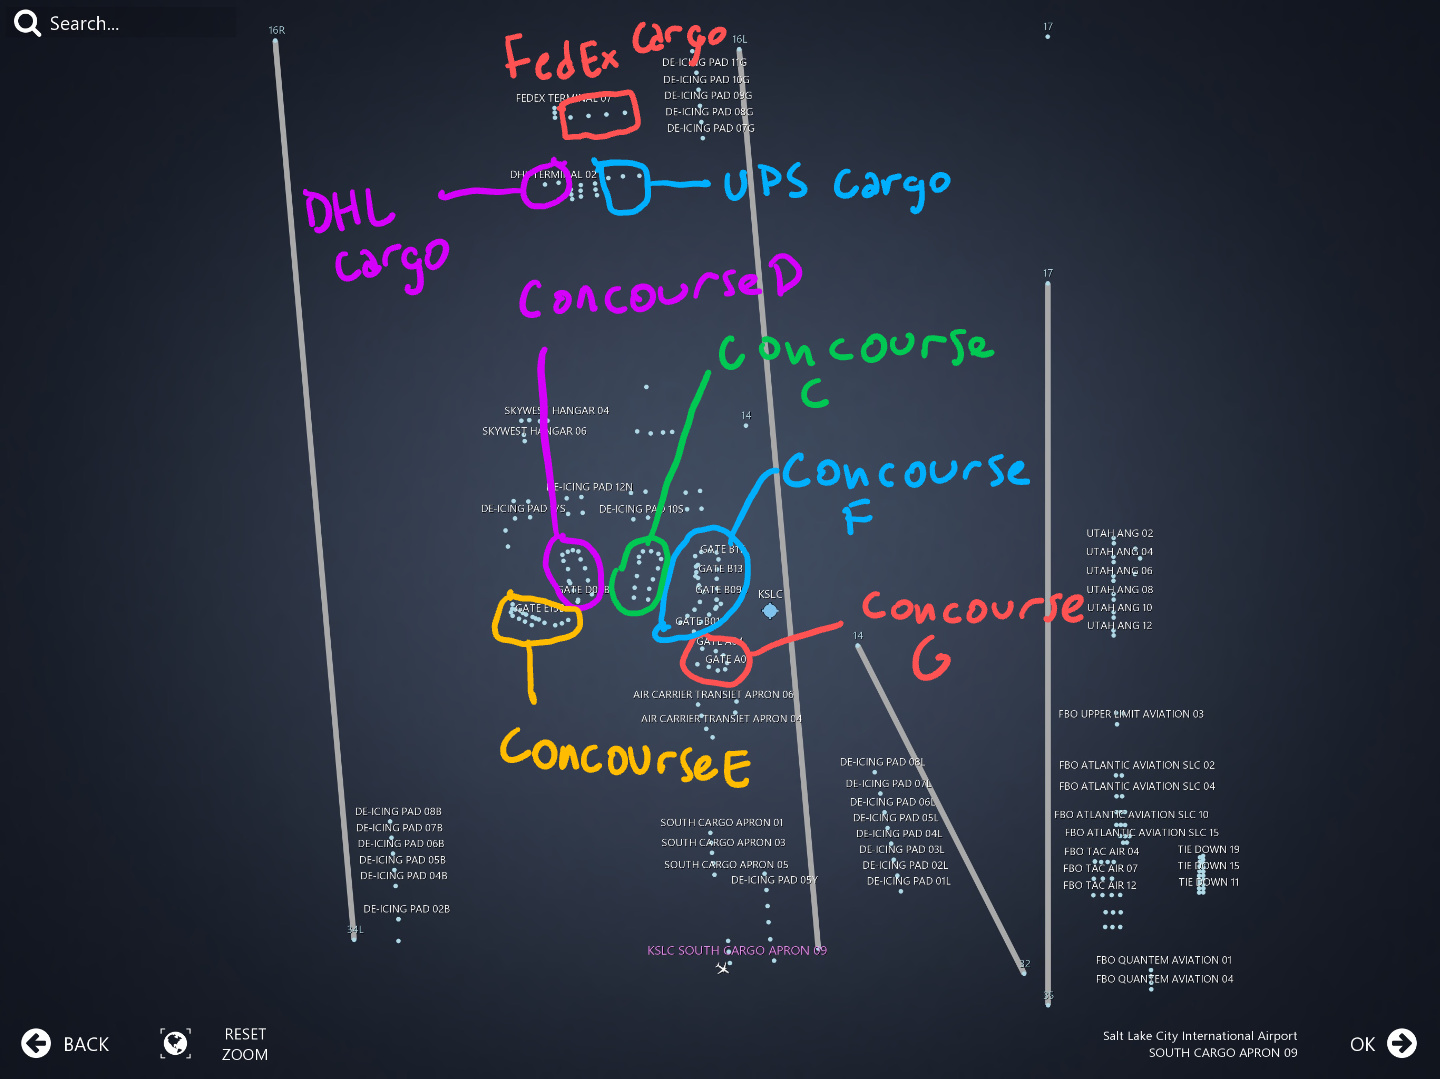 Search...
16R
16L
17
FedEx cargo
DE-ICING PAD 11G
DE-ICING PAD 10G
DE-ICING PAD 09G
DE-ICING PAD 08G
DE-ICING PAD 07G
FEDEX TERMINAL 07
DHL TERMINAL 02
UPS Cargo
DHL
cargo
Concourse D
17
Concourse
C
SKYWEST HANGAR 04
SKYWEST HANGAR 06
14
Concourse
F
DE-ICING PAD 12N
DE-ICING PAD
DE-ICING PAD 10S
UTAH ANG 02
UTAH ANG 04
UTAH ANG 06
UTAH ANG 08
UTAH ANG 10
UTAH ANG 12
GATE
GATE B13
GATE B09
GATE
GATE
GATE
GATE
GATE
KSLC
Concourse
G
14
AIR CARRIER TRANSIET APRON 06
AIR CARRIER TRANSIET APRON 04
FBO UPPER LIMIT AVIATION 03
Concourse E
DE-ICING PAD 08L
DE-ICING PAD 07L
DE-ICING PAD 06L
DE-ICING PAD 05L
DE-ICING PAD 04L
DE-ICING PAD 03L
DE-ICING PAD 02L
DE-ICING PAD 01L
FBO ATLANTIC AVIATION SLC 02
FBO ATLANTIC AVIATION SLC 04
FBO ATLANTIC AVIATION SLC 10
FBO ATLANTIC AVIATION SLC 15
FBO TAC AIR 04
FBO TAC AIR 07
FBO TAC AIR 12
TIE DOWN 19
TIE DOWN 15
TIE DOWN 11
DE-ICING PAD 08B
DE-ICING PAD 07B
DE-ICING PAD 06B
DE-ICING PAD 05B
DE-ICING PAD 04B
DE-ICING PAD 02B
34L
SOUTH CARGO APRON 01
SOUTH CARGO APRON 03
SOUTH CARGO APRON 05
DE-ICING PAD 05Y
KSLC SOUTH CARGO APRON 09
32
35
FBO QUANTEM AVIATION 01
FBO QUANTEM AVIATION 04
BACK
RESET
ZOOM
Salt Lake City International Airport
SOUTH CARGO APRON 09
OK